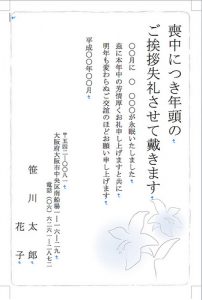 喪中につき年頭の
ご挨拶失礼させて戴きます
〇〇月に 〇 〇〇〇が永眠いたしました
茲に本年中の芳情厚くお礼申し上げますと共に
明年も変わらぬご交誼のほどお願い申し上げます
平成〇〇年〇〇月
〒五四二-〇〇八一
大阪府大阪市中央区南船場一-一六-二九
電話 (〇六) 六二六一-二八七一
笹川 太郎
花子